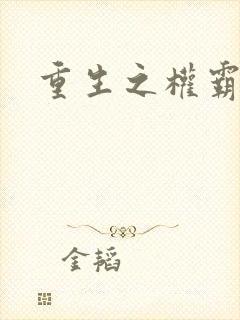 重生之権霸
金韬